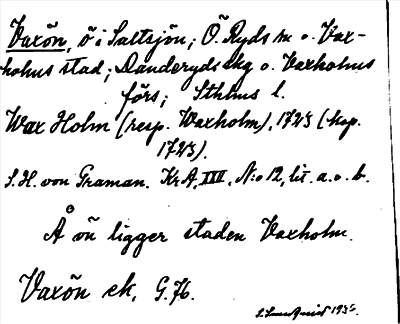 Vaxön, ö i Saltsjön; Ö. Ryds sn o. Vax-
holms stad; Danderyds skg o. Vaxholms
förs; Sthlms l.
Wax Holm (resp. Waxholm), 1725 (kop.
1725).
S. H. von Graman. Kr A, XVII, N:o 12, lit. a. o. b.
Å ön ligger staden Vaxholm.
Vaxön ek, G. 76.